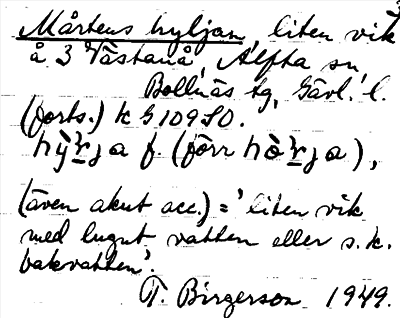 3
Mårtens hyljan, liten vik
å 3 Västanå, Alfta sn,
Bollnäs tg, Gävl. l.
(forts.) k G 109 SO.
hy̆ṟja f. (förr hòṟja),
(även akut acc.) = 'liten vik
med lugnt vatten eller s.k.
bakvatten'.
T. Birgerson 1949.